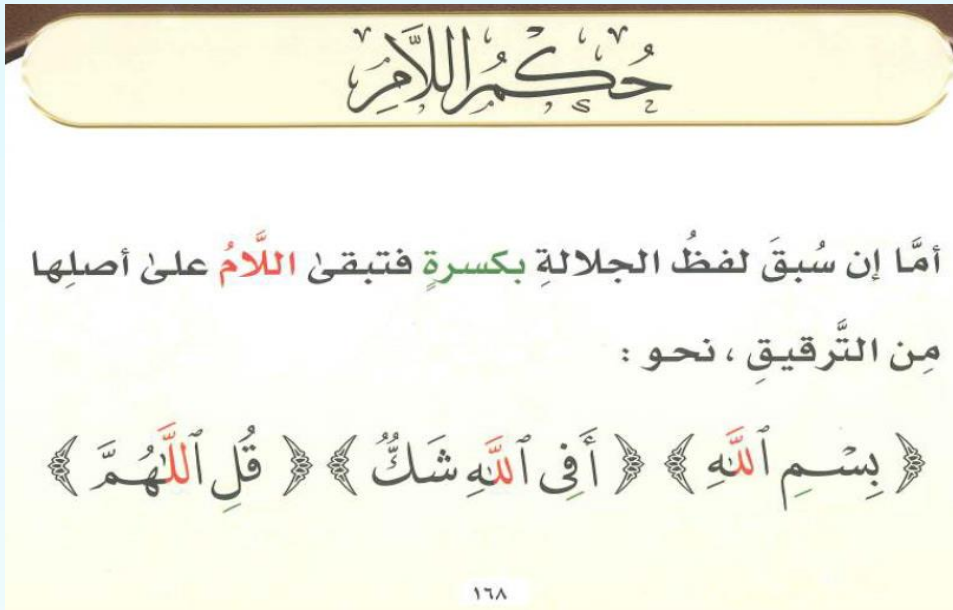 حُكْمُ اللَّامِ
أمَّا إن سُبقَ لفظُ الجلالةِ بكسرةٍ فتبقىٰ اللَّامُ علىٰ أصلِها
مِن التَّرقيقِ ، نحو :
﴿ بِسْمِ ٱللَّهِ ﴾ ﴿ أَفِى ٱللَّهِ شَكٌّ ﴾ ﴿ قُلِ ٱللَّهُمَّ ﴾
١٦٨